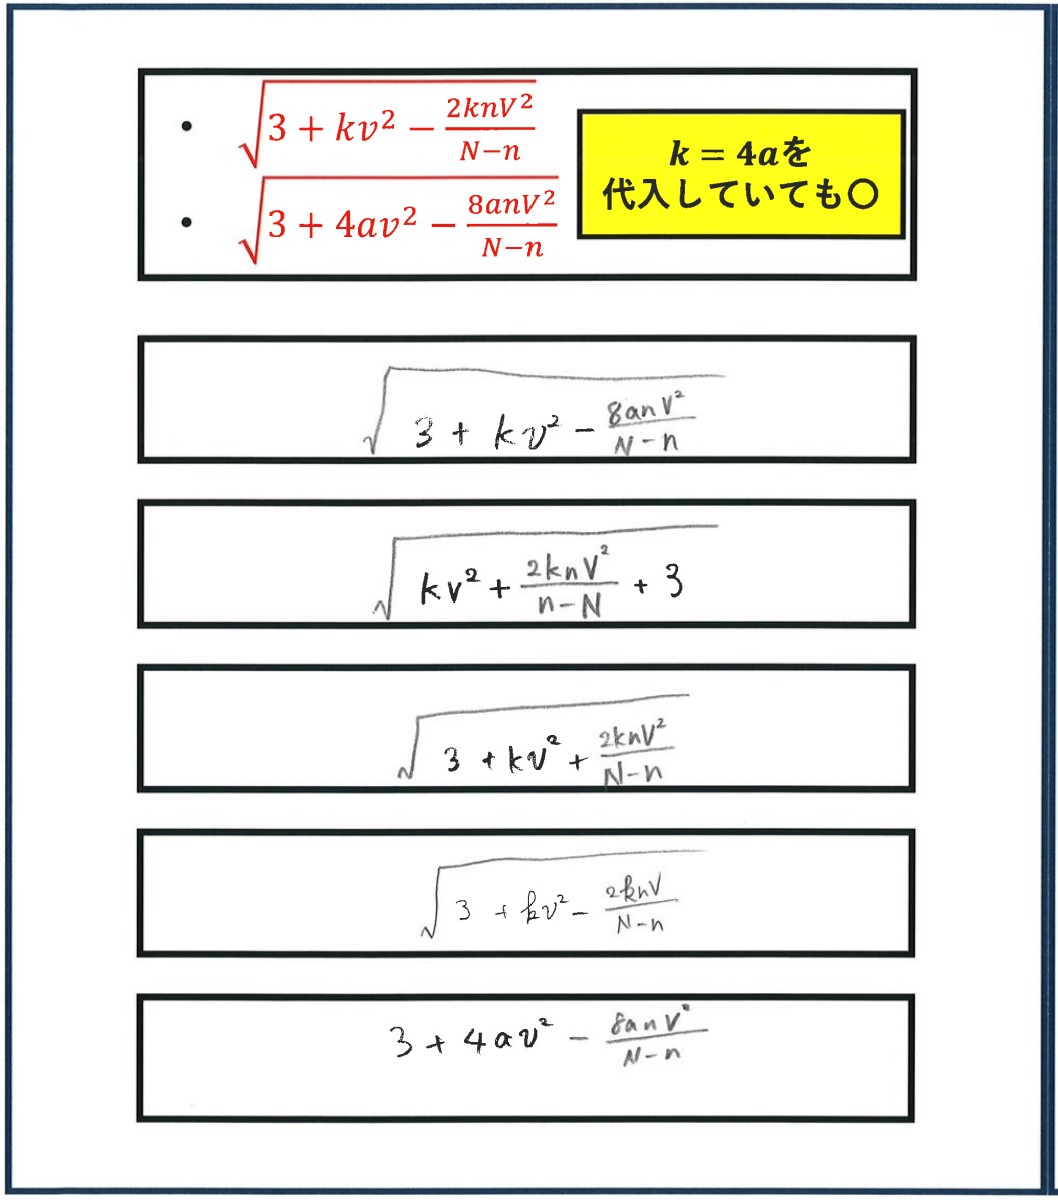 • √(3 + kv² − 2knV²/(N−n))
• √(3 + 4av² − 8anV²/(N−n))
k = 4aを
代入していても〇
√(3 + kv² − 8anV²/(N−n))
√(kv² + 2knV²/(n−N) + 3)
√(3 + kv² + 2knV²/(N−n))
√(3 + kv² − 2knV/(N−n))
3 + 4av² − 8anV²/(N−n)